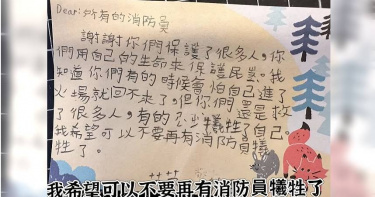 Dear:所有的消防員
謝謝你們保護了很多人,你
們用自己的生命來保護民眾。我
知道你們有的時候會怕自己進了
火場就回不來了,但你們還是救
了很多人,有的至少犧牲了自己。
我希望可以不要再有消防員犧
牲了。
我希望可以不要再有消防員犧牲了